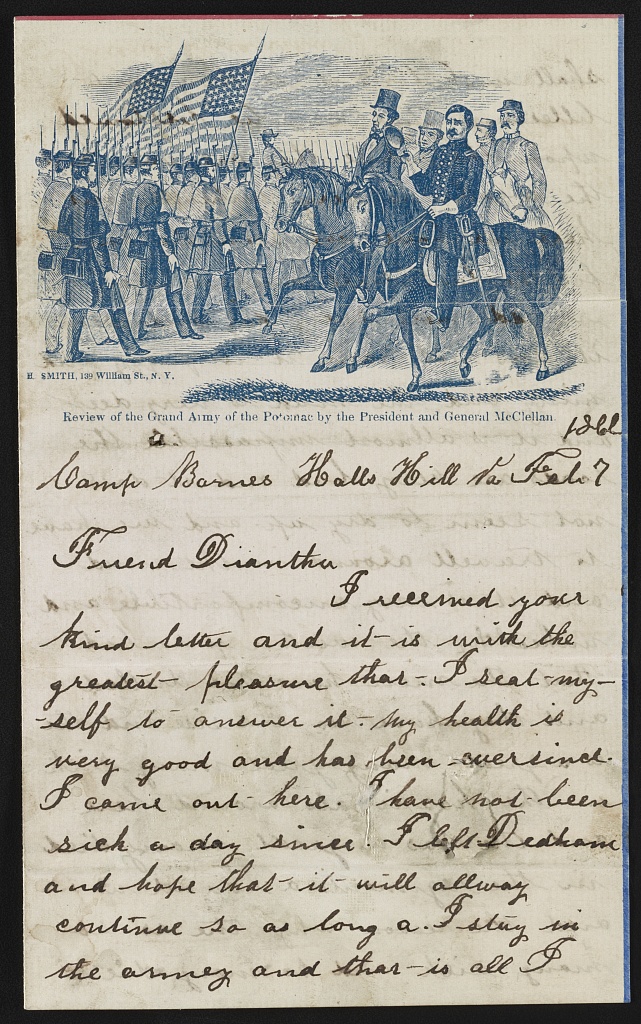 H. SMITH, 139 William St., N. Y.
Review of the Grand Army of the Potomac by the President and General McClellan.
1862
Camp Barnes Halls Hill Va Feb 7
Friend Diantha
I received your
kind letter and it is with the
greatest pleasure that I seat my-
-self to answer it my health is
very good and has been ever since
I came out here. I have not been
sick a day since I left Dedham
and hope that it will allway
continue so as long a. I stay in
the army and that is all I